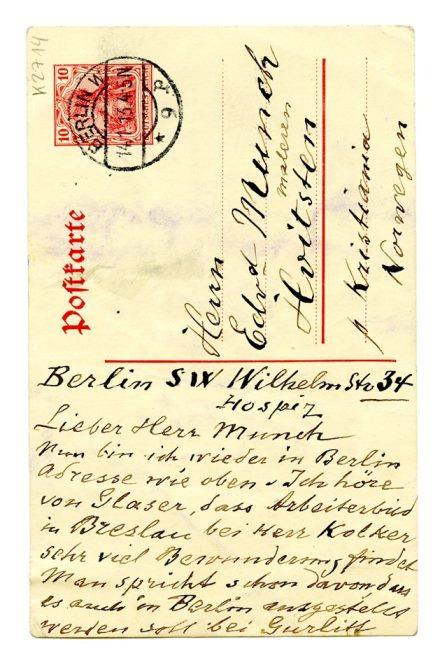 K2714
10 10
BERLIN W.
9 P.
Postkarte
Herrn
Edvd Munch
maleren
Hvitsten
p Kristiania
Norwegen
Berlin SW Wilhelm Str 34
Hospiz
Lieber Herr Munch
Nun bin ich wieder in Berlin
Adresse wie oben. Ich höre
von Glaser, dass Arbeiterbild
in Breslau bei Herr Kolker
sehr viel Bewunderung findet
Man spricht schon davon das
es auch in Berlin ausgestellt
werden soll bei Gurlitt